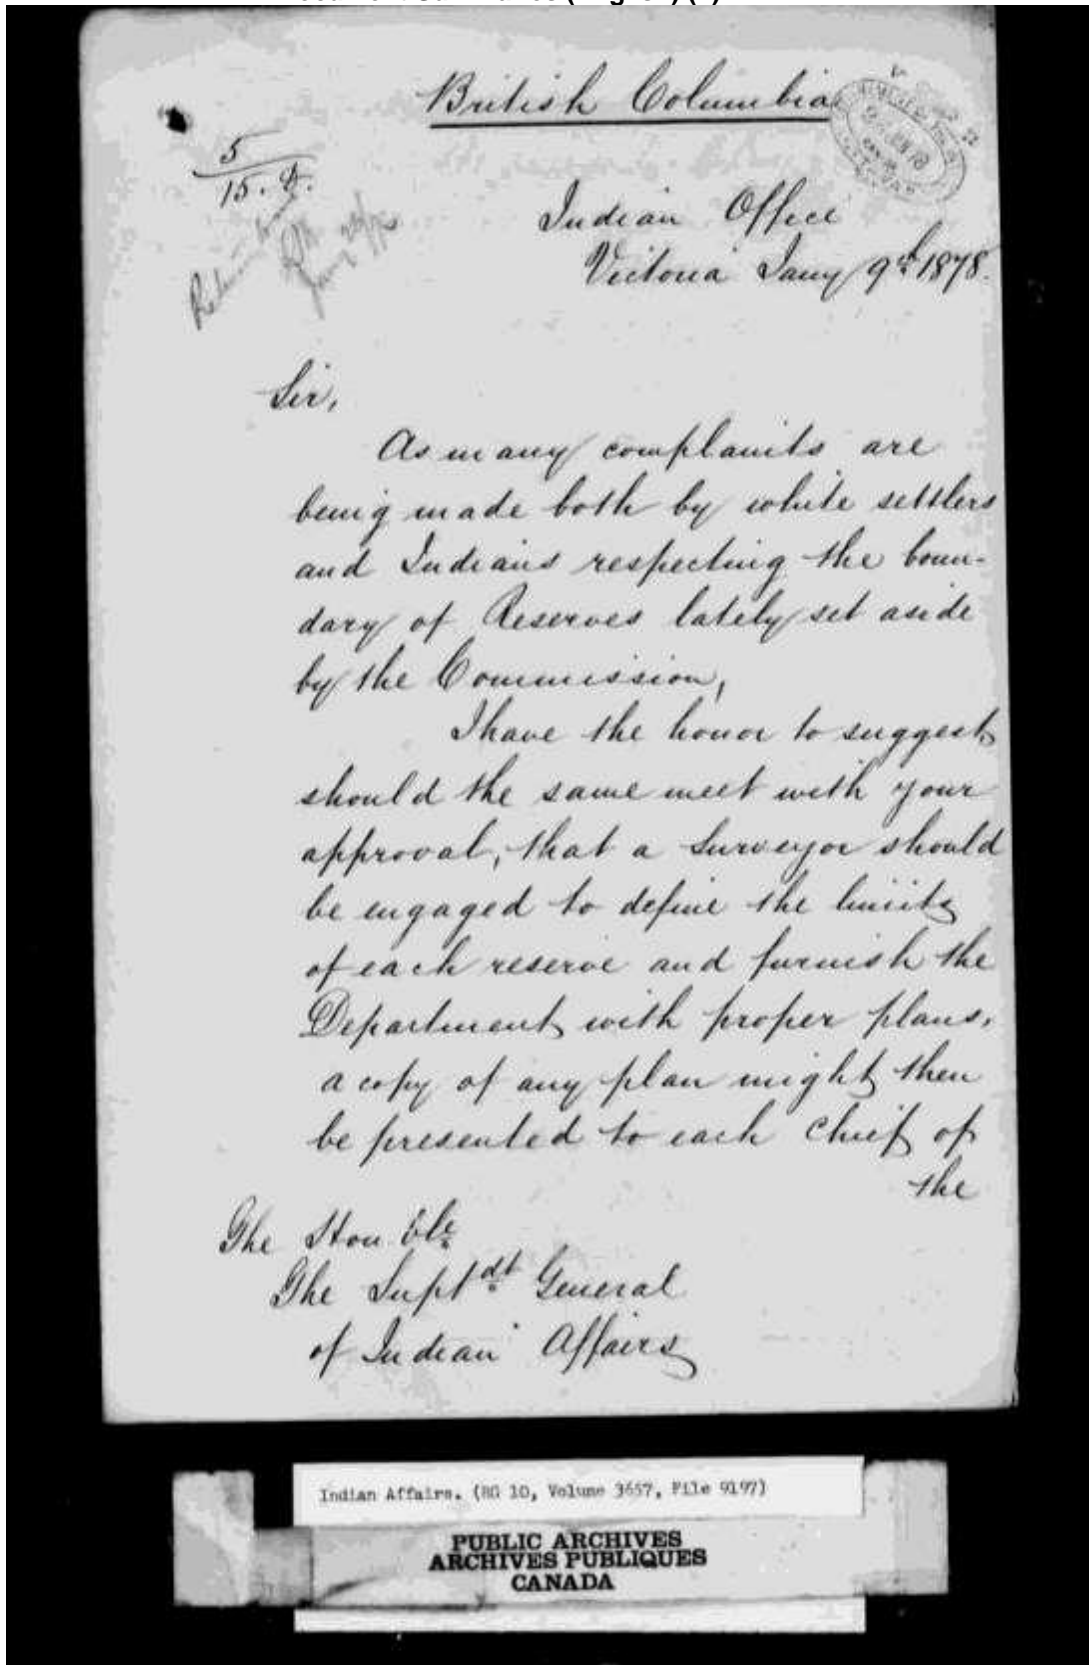 British Columbia
5
15. 
Indian Office
Victoria Jany 9th 1878.
Sir,
As many complaints are
being made both by white settlers
and Indians respecting the boun-
dary of Reserves lately set aside
by the Commission,
I have the honor to suggest
should the same meet with your
approval, that a Surveyor should
be engaged to define the limits
of each reserve and furnish the
Department with proper plans,
a copy of any plan might then
be presented to each Chief of
the
The Hon ble
The Supt dt General
of Indian Affairs
Indian Affairs. (RG 10, Volume 3657, File 9197)
PUBLIC ARCHIVES
ARCHIVES PUBLIQUES
CANADA